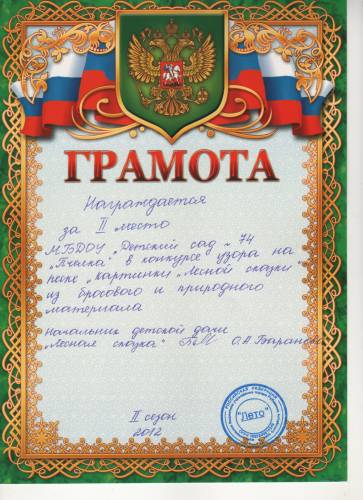 ГРАМОТА
Награждается
за II место
МБДОУ "Детский сад № 74
"Пчелка" в конкурсе узора на
"картинки "Лесной сказки"
из бросового и природного
материала
Начальник детской дачи
"Лесная сказка" О.А.
"Лето"
II сезон
2012